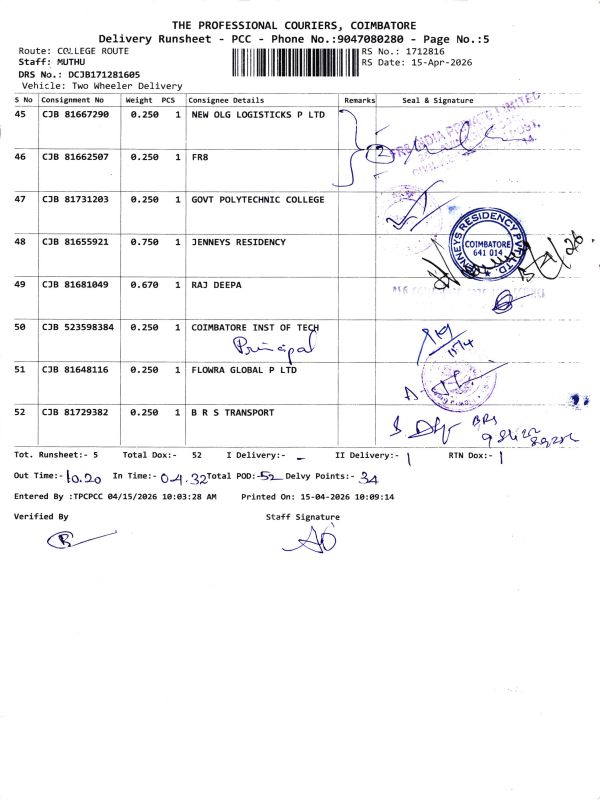 THE PROFESSIONAL COURIERS, COIMBATORE
Delivery Runsheet - PCC - Phone No.:9047080280 - Page No.:5
Route: COLLEGE ROUTE
RS No.: 1712816
Staff: MUTHU
RS Date: 15-Apr-2026
DRS No.: DCJB171281605
Vehicle: Two Wheeler Delivery
S No Consignment No Weight PCS Consignee Details Remarks Seal & Signature
45 CJB 81667290 0.250 1 NEW OLG LOGISTICKS P LTD
FR8 INDIA PRIVATE LIMITED
2
46 CJB 81662507 0.250 1 FR8
47 CJB 81731203 0.250 1 GOVT POLYTECHNIC COLLEGE
48 CJB 81655921 0.750 1 JENNEYS RESIDENCY
JENNEYS RESIDENCY PVT. LTD.
COIMBATORE
641 014
15/4/26
49 CJB 81681049 0.670 1 RAJ DEEPA
50 CJB 523598384 0.250 1 COIMBATORE INST OF TECH
Principal
15/4
51 CJB 81648116 0.250 1 FLOWRA GLOBAL P LTD
52 CJB 81729382 0.250 1 B R S TRANSPORT
BRS
Tot. Runsheet:- 5 Total Dox:- 52 I Delivery:- - II Delivery:- 1 RTN Dox:- 1
Out Time:- 10.20 In Time:- 04.32 Total POD:- 52 Delvy Points:- 34
Entered By :TPCPCC 04/15/2026 10:03:28 AM Printed On: 15-04-2026 10:09:14
Verified By Staff Signature